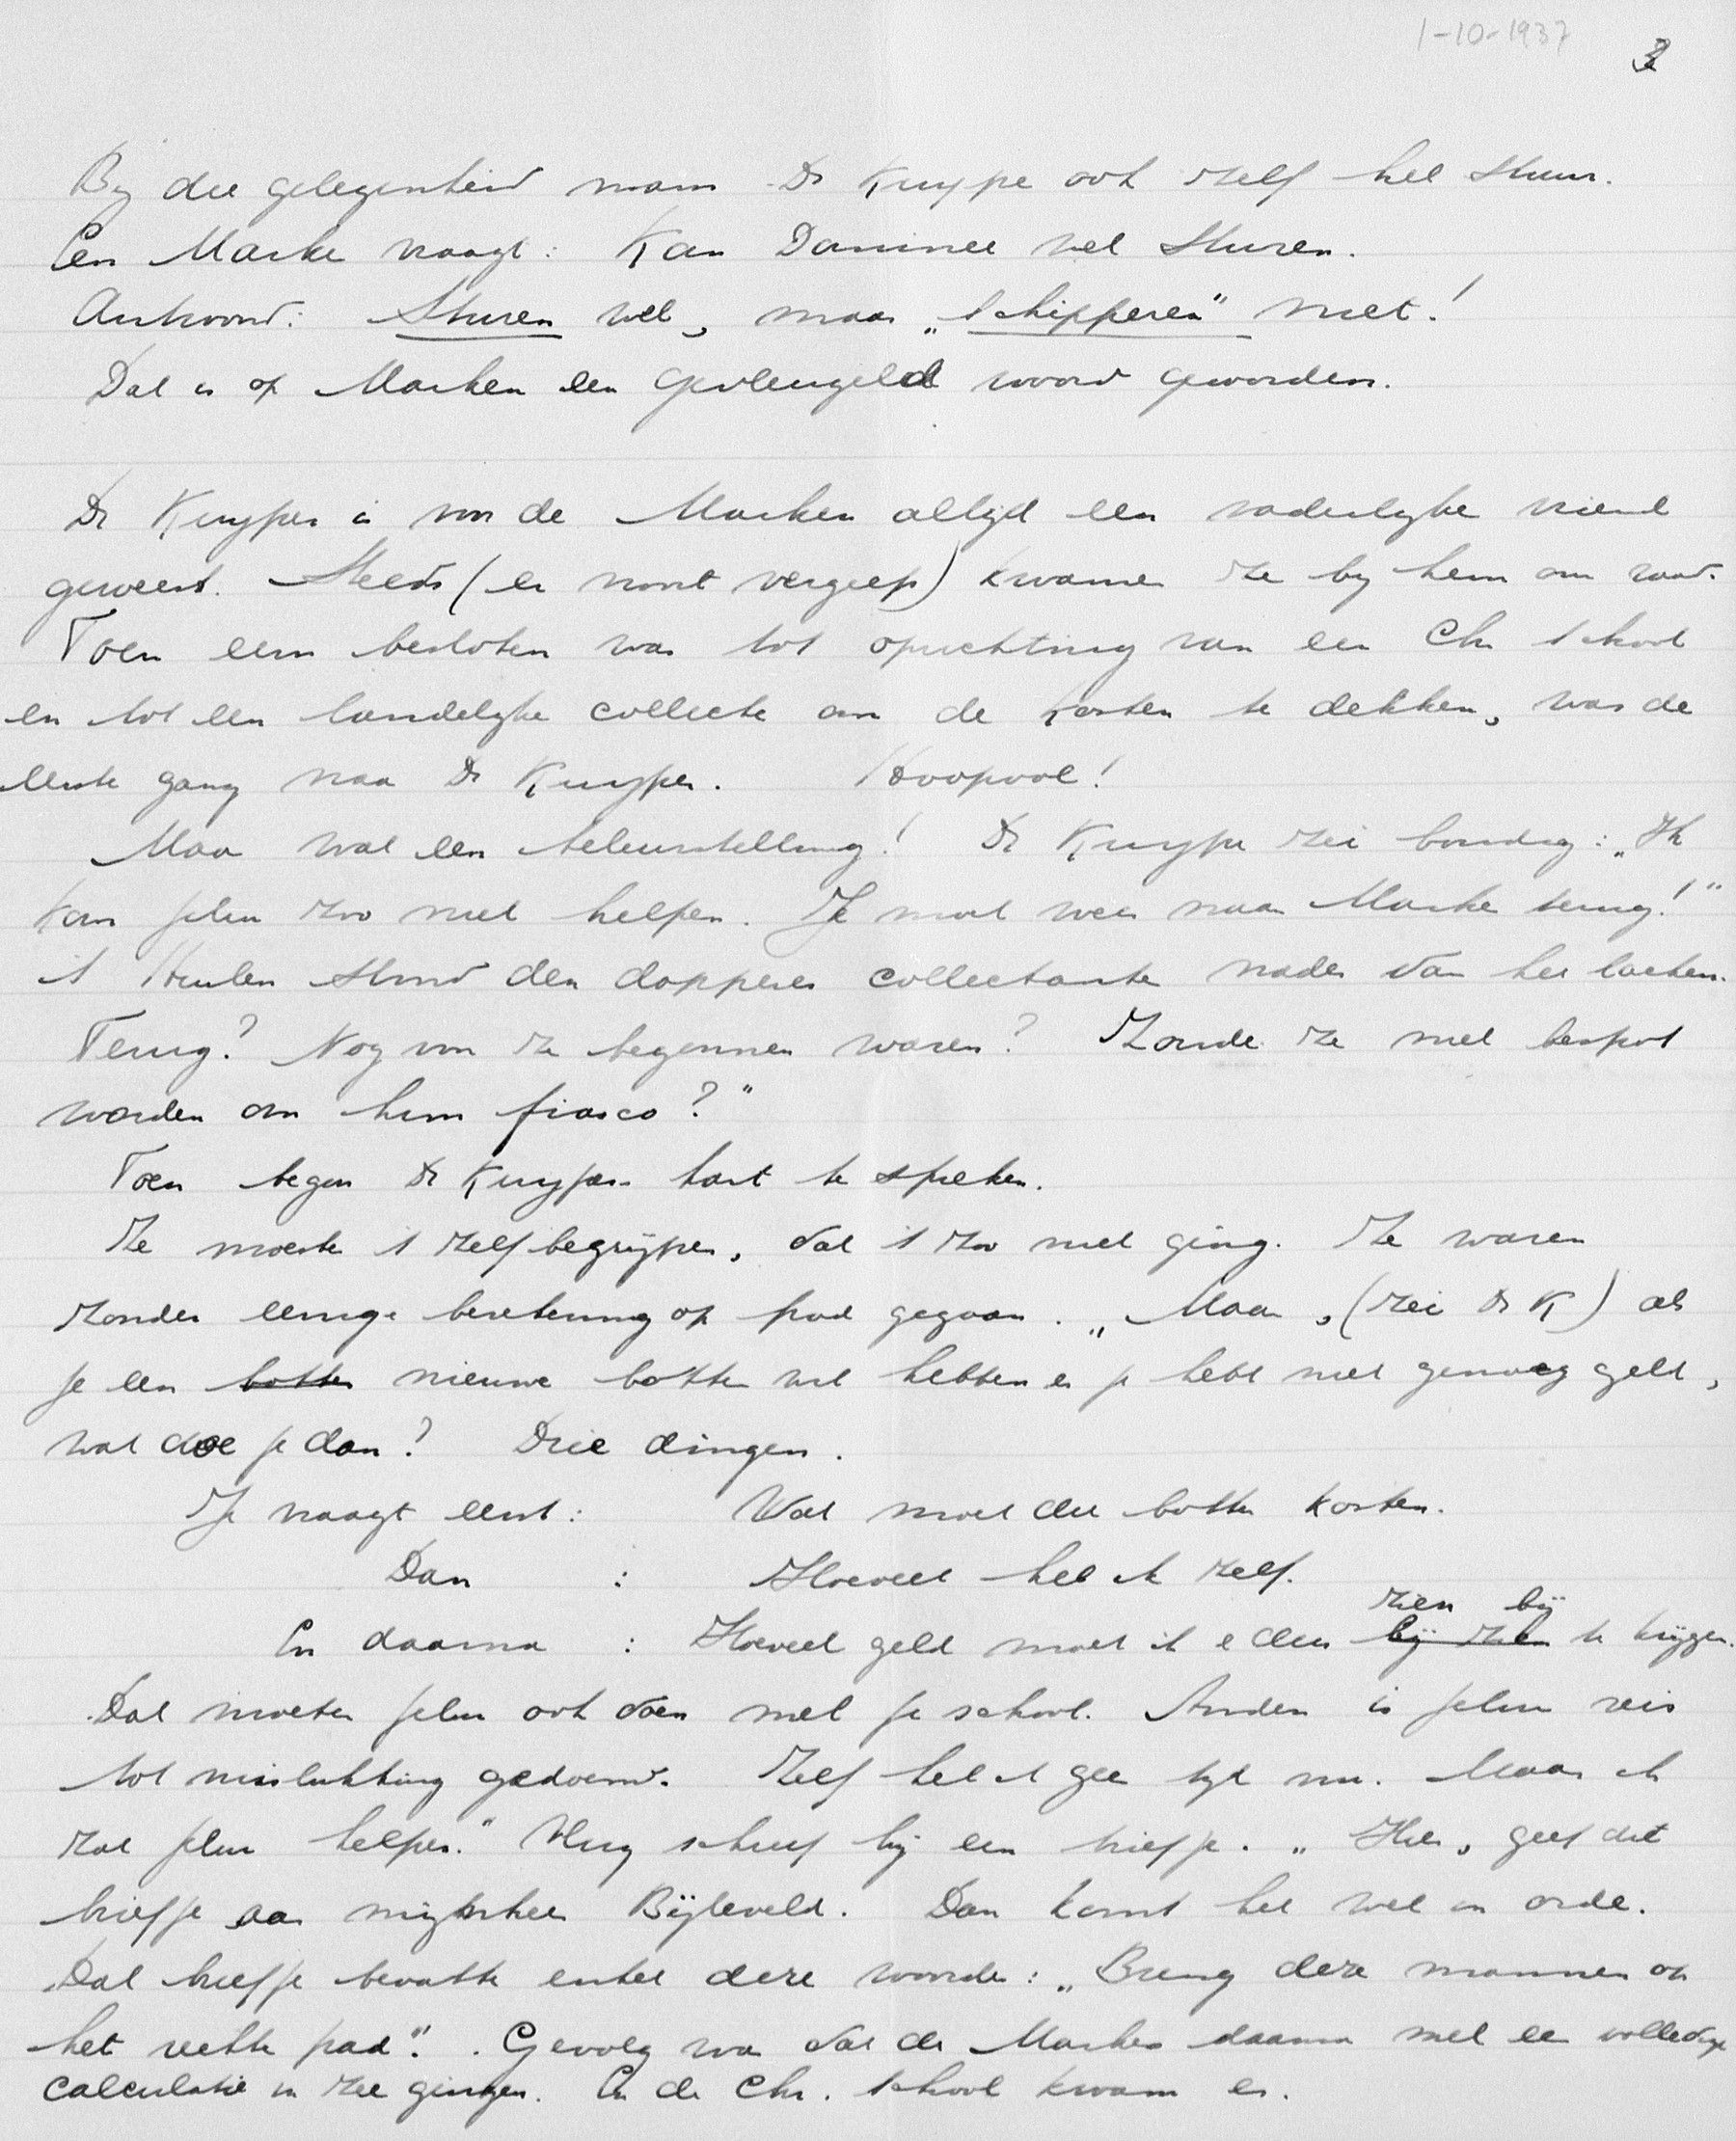 1-10-1937
3
By die gelegenheid nam Dr Kuyper ook zelf het stuur.
Een Marker vraagt: Kan Dominee wel sturen.
Antwoord: Sturen wel, maar „schipperen" niet!
Dat is op Marken een gevleugeld woord geworden.
Dr Kuyper is voor de Marken altijd een vaderlyke vriend
geweest. Steeds (en nooit vergeefs) kwamen ze by hem om raad.
Toen eens besloten was tot oprichting van een Chr school
en tot een landelyke collecte om de kosten te dekken, was de
eerste gang naar Dr Kuyper. Hoopvol!
Maar wat een teleurstelling! Dr Kuyper zei bondig: „Ik
kan jelui zoo niet helpen. Je moet weer naar Marken terug!"
't Huilen stond den dapperen collectanten nader dan het lachen.
Terug? Nog voor ze begonnen waren? Zouden ze niet bespot
worden om hun fiasco?"
Toen begon Dr Kuyper hart te spreken.
Ze moesten 't zelf begrijpen, dat 't zoo niet ging. Ze waren
zonder eenige berekening op pad gegaan. „Maar, (zei Dr K) als
je een botter nieuwe botter wil hebben en je hebt niet genoeg geld,
wat doe je dan? Drie dingen.
Je vraagt eerst: Wat moet die botter kosten.
Dan : Hoeveel heb ik zelf.
zien bij
En daarna : Hoeveel geld moet ik er dus bij zien te krijgen.
Dat moeten jelui ook doen met je school. Anders is jelui reis
tot mislukking gedoemd. Zelf heb ik geen tyd nu. Maar ik
zal jelui helpen." Vlug schreef hij een briefje. „Hier, geef dit
briefje aan mijnheer Bijleveld. Dan komt het wel in orde.
Dat briefje bevatte enkel deze woorden: „Breng deze mannen op
het rechte pad". Gevolg was dat de Markers daarna met een volledige
calculatie in zee gingen. En de Chr. school kwam er.